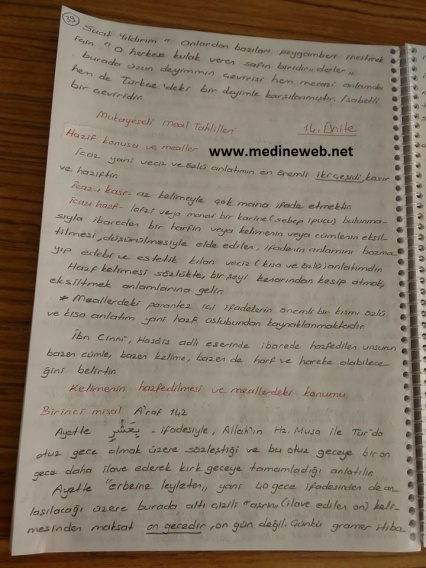 39
Suat Yıldırım " Onlardan bazıları peygamberi incitmek
için " O herkese kulak veren safın biridir" derler "
burada üzün deyiminin çevirisi hem mecazi anlamda
hem de Türkçe'deki bir deyimle karşılanmıştır. İsabetli
bir çeviridir.
Mukayeseli Meal Tahlilleri 14. Ünite
Hazif konusu ve mealler
www.medineweb.net
İcaz yani veciz ve özlü anlatımın en önemli iki çeşidi, kasr
ve haziftir.
İcaz-ı kasr: az kelimeyle çok mana ifade etmektir.
İcazı hazf: lafzi veya manevi bir karine (sebep ipucu) bulunma-
sıyla ibareden bir harfin veya kelimenin veya cümlenin eksil-
tilmesi, düşürülmesiyle elde edilen, ifadenin anlamını bozma-
yıp edebi ve estetik kılan veciz (kısa ve özlü) anlatımdır.
Hazf kelimesi sözlükte, bir şeyi kenarından kesip atmak,
eksiltmek anlamlarına gelir.
* Meallerdeki parantez içi ifadelerin önemli bir kısmı özlü
ve kısa anlatım yani hazf üslubundan kaynaklanmaktadır.
İbn Cinni, Hasâis adlı eserinde ibarede hazfedilen unsurun
bazen cümle, bazen kelime, bazen de harf ve hareke olabilece-
ğini belirtir.
Kelimenin hazfedilmesi ve meallerdeki konumu
Birinci misal A'raf 142
Ayette بِعَشْرٍ - ifadesiyle, Allah'ın Hz. Musa ile Tur'da
otuz gece olmak üzere sözleştiği ve bu otuz geceye bir on
gece daha ilave ederek kırk geceye tamamladığı anlatılır.
Ayette "erbeîne leyleten" yani 40 gece ifadesinden de an-
laşılacağı üzere burada altı çizili "aşrin" (ilave edilen on) keli-
mesinden maksat on gecedir, on gün değil. Çünkü gramer itiba-